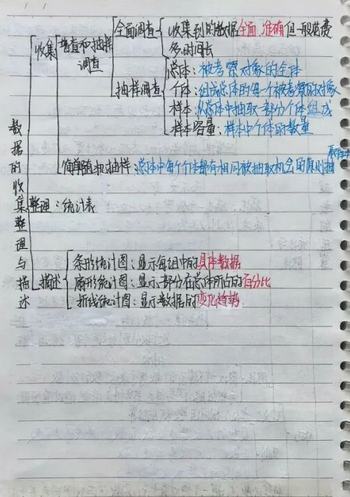 全面调查 收集到的数据全面,准确但一般花费
多时间长
收集 普查和抽样
调查
抽样调查 总体:被考察对象的全体
个体:组成总体的每一个被考察对象
样本:从总体中抽取部分个体组成
样本容量:样本中个体的数量
简单随机抽样:总体中每个个体都有相同被抽取机会的原则抽
数据的收集整理与描述
整理:统计表
描述
条形统计图:显示每组中的具体数据
扇形统计图:显示部分在总体所占的百分比
折线统计图:显示数据的变化趋势